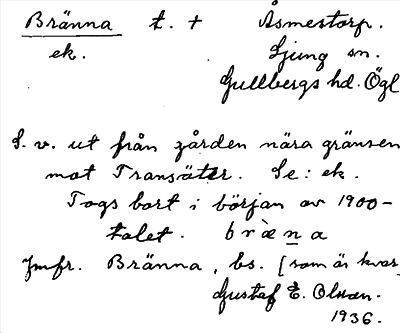 Bränna t. + Åsmestorp.
ek. Ljung sn.
Gullbergs hd. Ögl
S. v. ut från gården nära gränsen
mot Transäter. Se: ek.
Togs bort i början av 1900-
talet. bræ̀na
Jmfr. Bränna, bs. [som är kvar]
Gustaf E. Olsson.
1936.